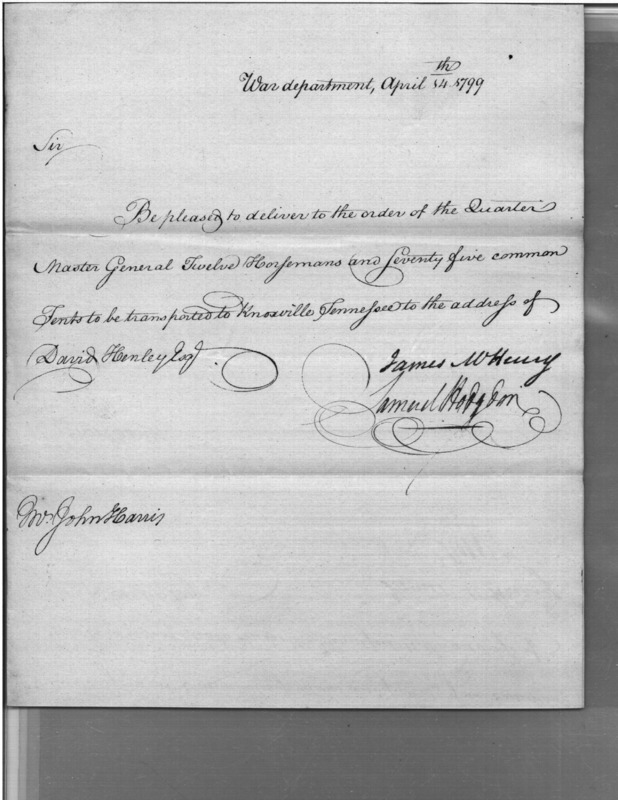 War department, April 14th 1799
Sir
Be pleased to deliver to the order of the Quarter
Master General Twelve Horsemans and Seventy five common
Tents to be transported to Knoxville Tennessee to the address of
David Henley Esq
James McHenry
Samuel Hodgdon
Mr. John Harris